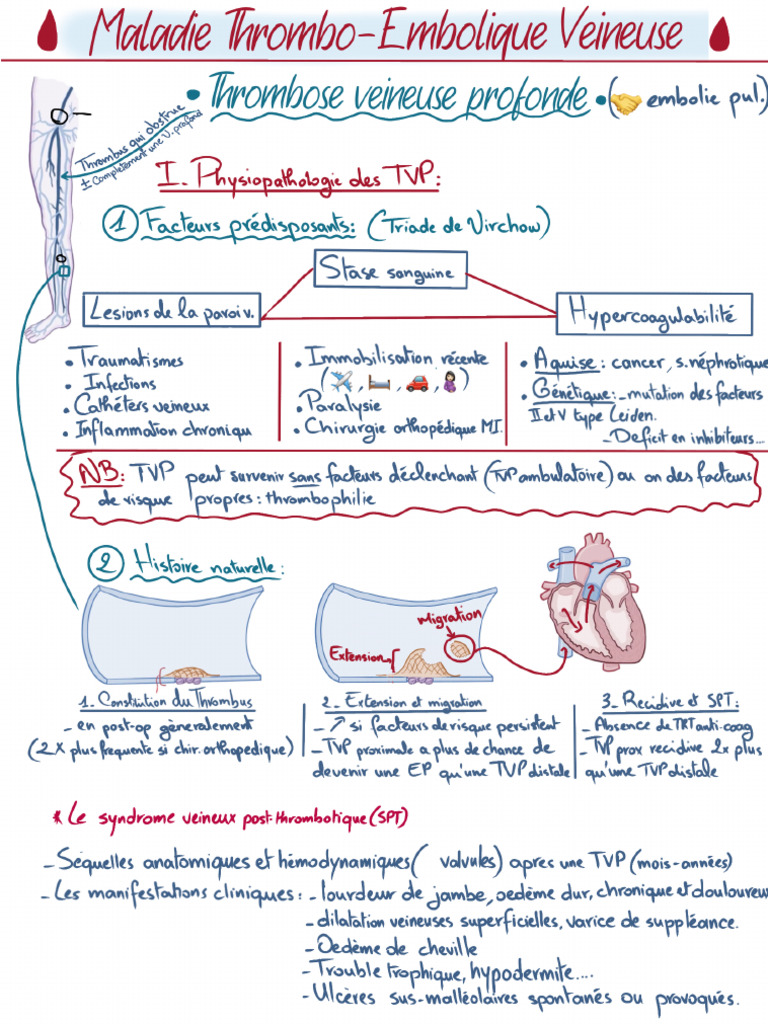 Maladie Thrombo-Embolique Veineuse
• Thrombose veineuse profonde • (🤝 embolie pul.)
Thrombus qui obstrue
± Complètement une V. profond
I. Physiopathologie des TVP:
1 Facteurs prédisposants: (Triade de Virchow)
Stase sanguine
Lesions de la paroi v.
Hypercoagulabilité
• Traumatismes
• Infections
• Cathéters veineux
• Inflammation chroniqu
• Immobilisation récente
(✈️, 🛏️, 🚗, 🤰)
• Paralysie
• Chirurgie orthopédique MI.
• Aquise: cancer, s. néphrotique
• Génétique: - mutation des facteurs
II et V type Leiden.
- Deficit en inhibiteurs...
NB: TVP peut survenir sans facteurs déclenchant (TVP ambulatoire) ou on des facteurs
de risque propres: thrombophilie
2 Histoire naturelle:
migration
Extension
1. Constitution du Thrombus
- en post-op gèneralement
(2x plus frequente si chir. orthopedique)
2 - Extension et migration
- ↗ si facteurs de risque persistent
- TVP proximale a plus de chance de
devenir une EP qu'une TVP distale
3 - Recidive et SPT:
- Absence de TRT anti-coag
- TVP prox recidive 2x plus
qu'une TVP distale
* Le syndrome veineux post-thrombotique (SPT)
- Séquelles anatomiques et hémodynamiques ( valvules) apres une TVP (mois-années)
- Les manifestations cliniques: - lourdeur de jambe, oedème dur, chronique et douloureux
- dilatation veineuses superficielles, varice de suppléance.
- Oedème de cheville
- Trouble trophique, hypodermite....
- Ulcères sus-malléolaires spontanés ou provoqués.